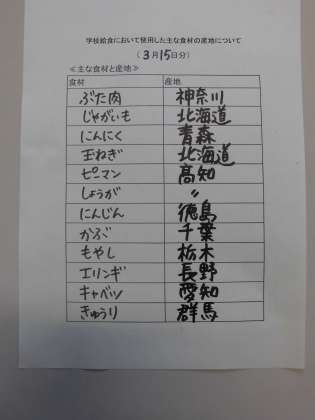 学校給食において使用した主な食材の産地について
（3月15日分）
≪主な食材と産地≫
食材 産地
ぶた肉 神奈川
じゃがいも 北海道
にんにく 青森
玉ねぎ 北海道
ピーマン 高知
しょうが 〃
にんじん 徳島
かぶ 千葉
もやし 栃木
エリンギ 長野
キャベツ 愛知
きゅうり 群馬